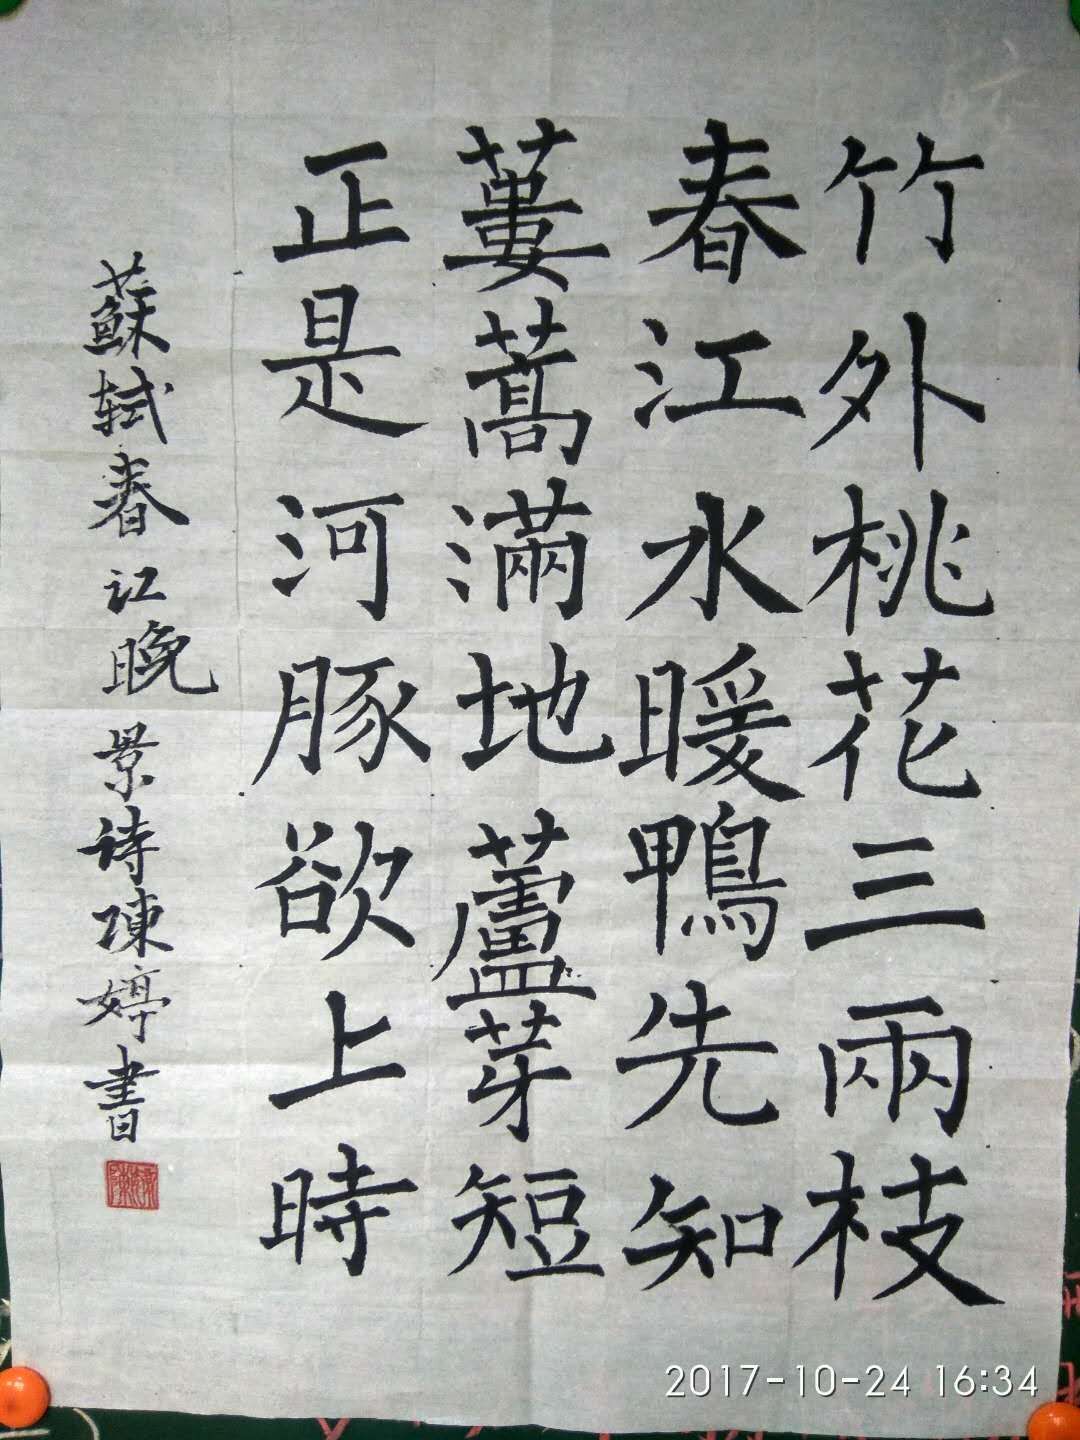 竹外桃花三兩枝
春江水暖鴨先知
蔞蒿滿地蘆芽短
正是河豚欲上時
蘇轼春江晚景诗陳婷書
2017-10-24 16:34